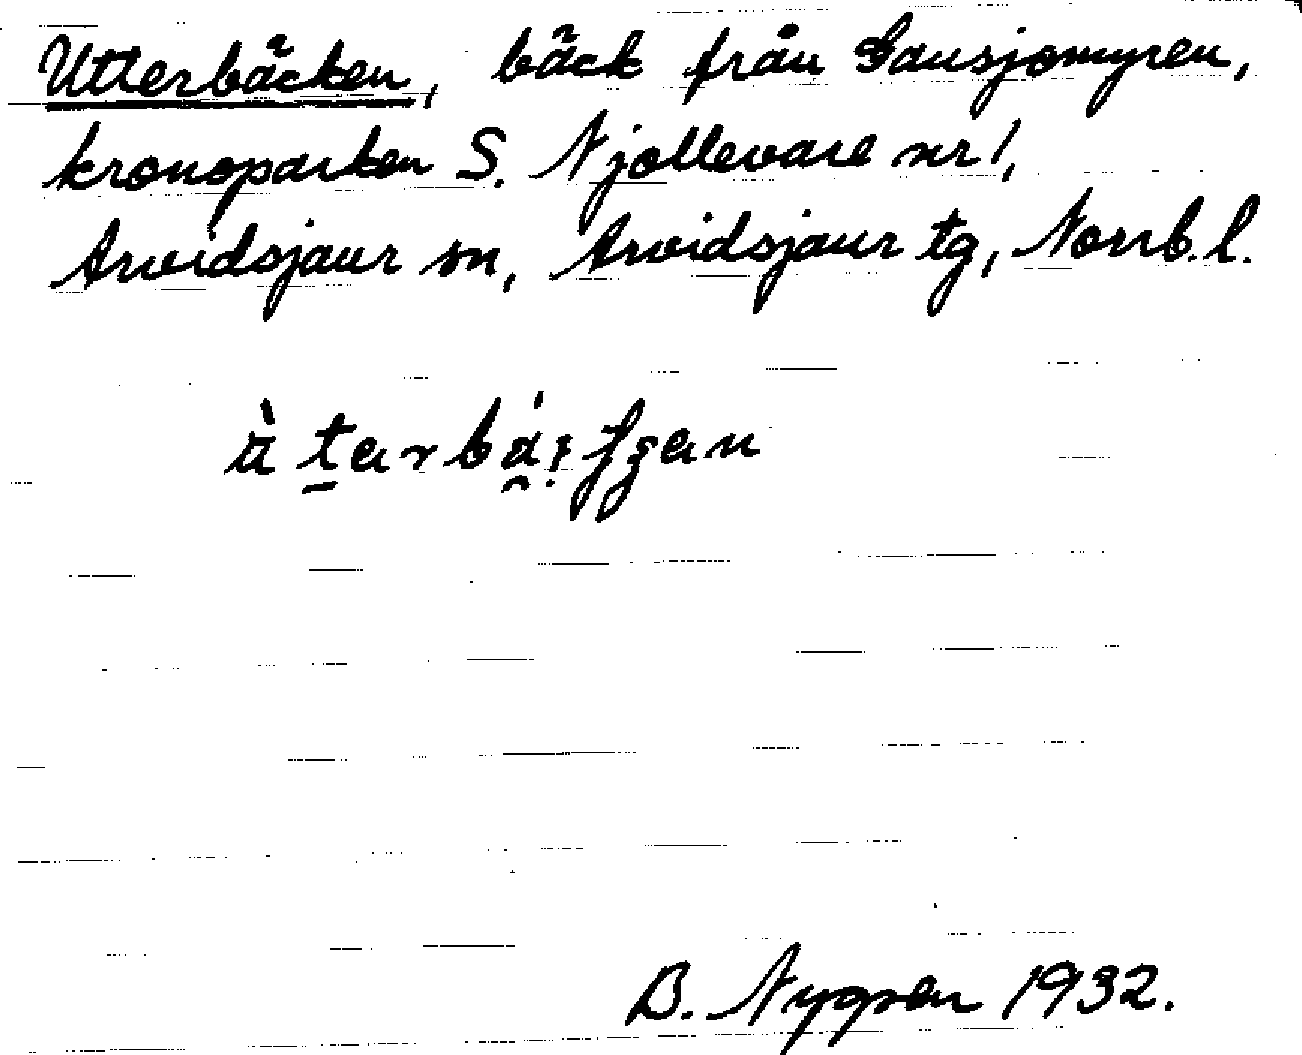 Utterbäcken, bäck från Gausjomyren,
kronoparken S. Njollevare nr 1,
Arvidsjaur sn, Arvidsjaur tg, Norrb. l.
B. Nygren 1932.